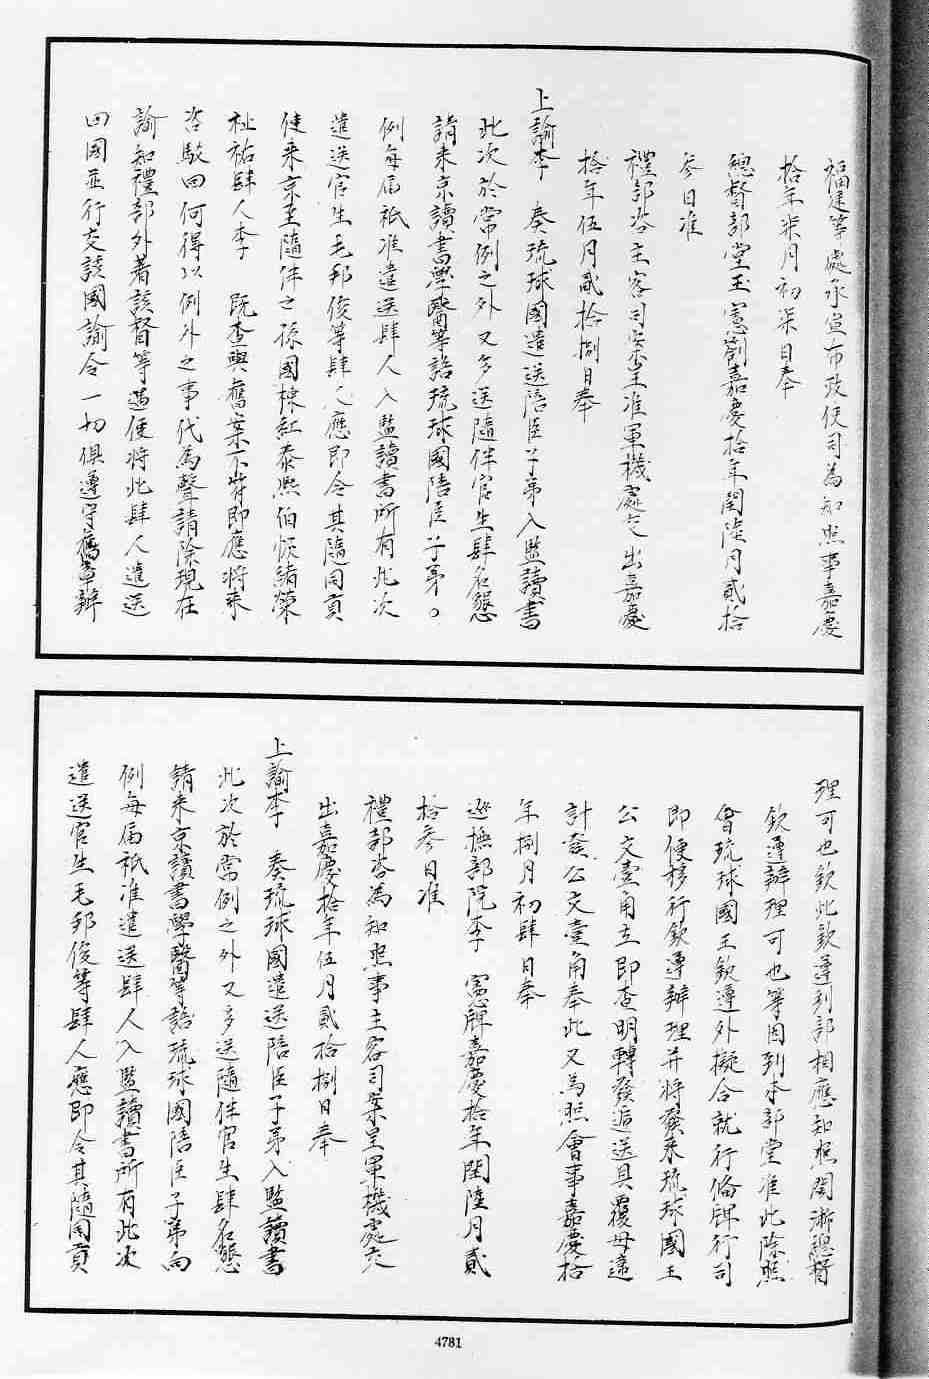 福建等處承宣布政使司為知照事嘉慶
拾年柒月初柒日奉
總督部堂玉憲劄嘉慶拾年閏陸月貳拾
參日准
禮部咨主客司案呈准軍機處交出嘉慶
拾年伍月貳拾捌日奉
上諭李 奏琉球國遣送陪臣子弟入監讀書
此次於常例之外又多送隨伴官生肆名懇
請來京讀書學醫等語琉球國陪臣子弟。
例每屆祇准遣送肆人入監讀書所有此次
遣送官生毛邦俊等肆人應即令其隨同貢
使來京至隨伴之孫國棟紅泰熙伯 緒榮
祉祐肆人李 既查與舊案不符即應將來
咨駁回何得以例外之事代為聲請除現在
諭知禮部外著該督等遇便將此肆人遣送
回國並行交該國諭令一切俱遵守舊章辦
理可也欽此欽遵到部相應知照閩浙總督
欽遵辦理可也等因到本部堂准此除照
會琉球國王欽遵外擬合就行俻牌行司
即便移行欽遵辦理并將發來琉球國王
公文壹角立即查明轉發逓送具覆毋違
計發公文壹角奉此又為照會事嘉慶拾
年捌月初肆日奉
巡撫部院李 憲牌嘉慶拾年閏陸月貳
拾參日准
禮部咨為知照事主客司案呈軍機處交
出嘉慶拾年伍月貳拾捌日奉
上諭李 奏琉球國遣送陪臣子弟入監讀書
此次於常例之外又多送隨伴官生肆名懇
請來京讀書學醫等語琉球國陪臣子弟向
例每屆祇准遣送肆人入監讀書所有此次
遣送官生毛邦俊等肆人應即令其隨同貢
4781